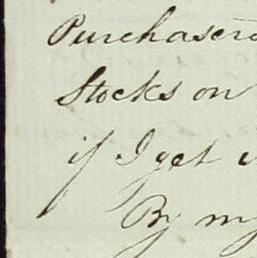 Purchasers
Stocks on
if I get
By my